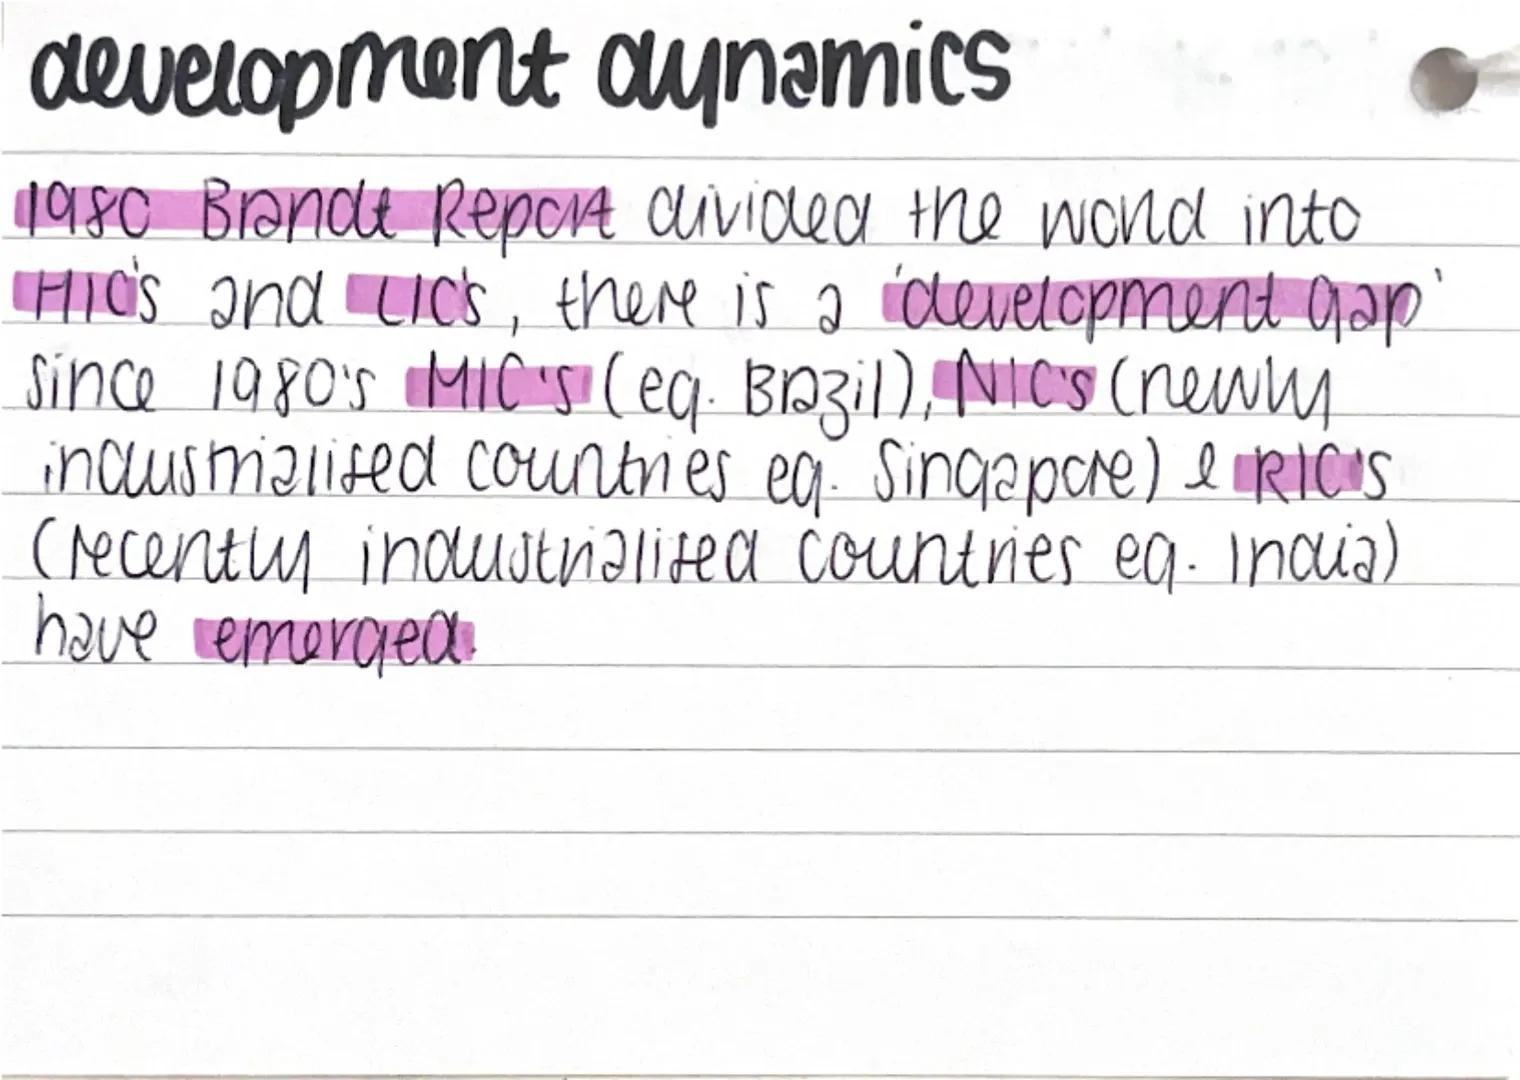 development dynamics
1980 Brandt Report divided the world into
HIC's and LIC's, there is a 'development gap'
since 1980's MIC's (eg. Brazil), NIC's (newly
industrialised countries eg. Singapore) & RIC's
(recently industrialised countries eg. India)
have emerged.